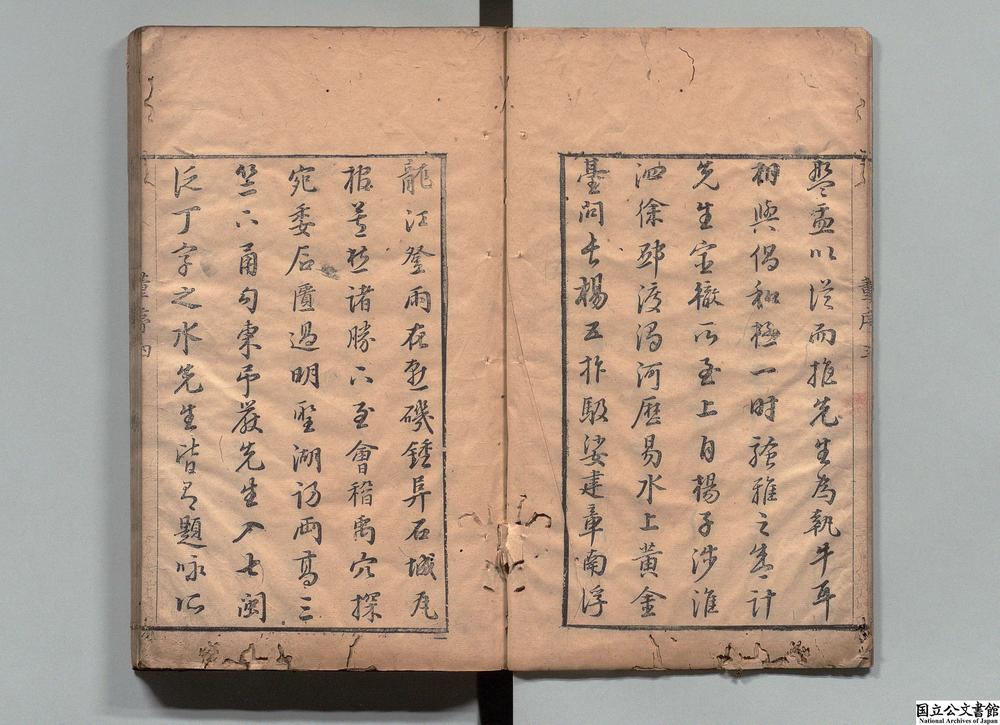 盤盂以從而推先生為執牛耳
相與倡和極一時騷雅之盛計
先生宦轍所至上自楊子涉淮
泗徐邳渡濁河歷易水上黃金
臺問長楊五柞馺娑建章南浮
龍江登雨花燕磯鍾阜石城瓦
棺蓋諸勝下至會稽禹穴探
宛委石匱過明聖湖訪兩高三
竺下甬句東弔嚴先生入七閩
泛丁字之水先生皆有題咏所
董序三
董序四
国立公文書館
National Archives of Japan